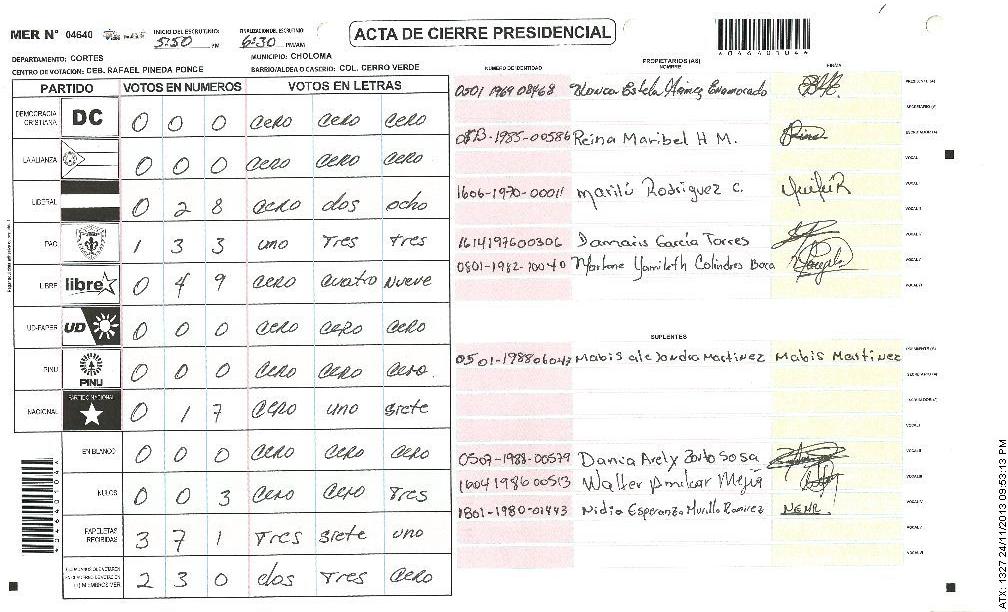 MER N° 04640
INICIO DEL ESCRUTINIO: 5:50 PM
FINALIZACION DEL ESCRUTINIO 6:30 PM/AM
ACTA DE CIERRE PRESIDENCIAL
DEPARTAMENTO: CORTES
MUNICIPIO: CHOLOMA
CENTRO DE VOTACION: CEB. RAFAEL PINEDA PONCE
BARRIO/ALDEA O CASERIO: COL. CERRO VERDE
PARTIDO VOTOS EN NUMEROS VOTOS EN LETRAS
DEMOCRACIA CRISTIANA DC 0 0 0 cero cero cero
LA ALIANZA 0 0 0 cero cero cero
LIBERAL 0 2 8 cero dos ocho
PAC 1 3 3 uno Tres tres
LIBRE libre 0 4 9 cero cuatro nueve
UD-FAPER UD 0 0 0 cero cero cero
PINU PINU 0 0 0 cero cero cero
NACIONAL PARTIDO NACIONAL 0 1 7 cero uno siete
EN BLANCO 0 0 0 cero cero cero
NULOS 0 0 3 cero cero Tres
PAPELETAS RECIBIDAS 3 7 1 Tres siete uno
2 3 0 dos Tres cero
NUMERO DE IDENTIDAD PROPIETARIOS (AS) NOMBRE FIRMA
0501 1969 08468
Reina Maribel H M.
1606-1970-00011 Marilú Rodriguez C.
1614197600306 Damaris García Torres
0801-1982-10040 Marlene Yamileth Colindres Baca
SUPLENTES
0501-198806043 Mabis alejandra Martinez Mabis Martinez
0507-1988-00579 Dania Arely Sosa
1604198600513 Walter Amilcar Mejia
1801-1980-01443 Nidia Esperanza Murillo Ramirez NEMR.
ATX: 1327 24/11/2013 09:53:13 PM